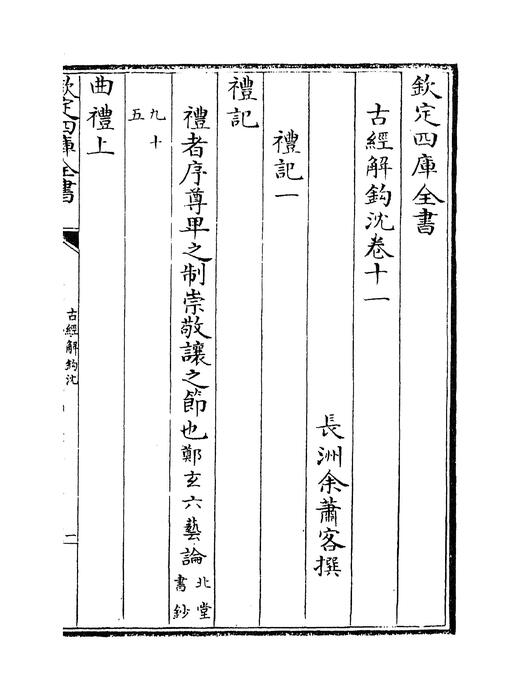 欽定四庫全書
古經解鈎沈卷十一
長洲余蕭客撰
禮記一
禮記
禮者序尊卑之制崇敬讓之節也鄭玄六藝論北堂書鈔
九十五
曲禮上
欽定四庫全書
古經解鈎沈